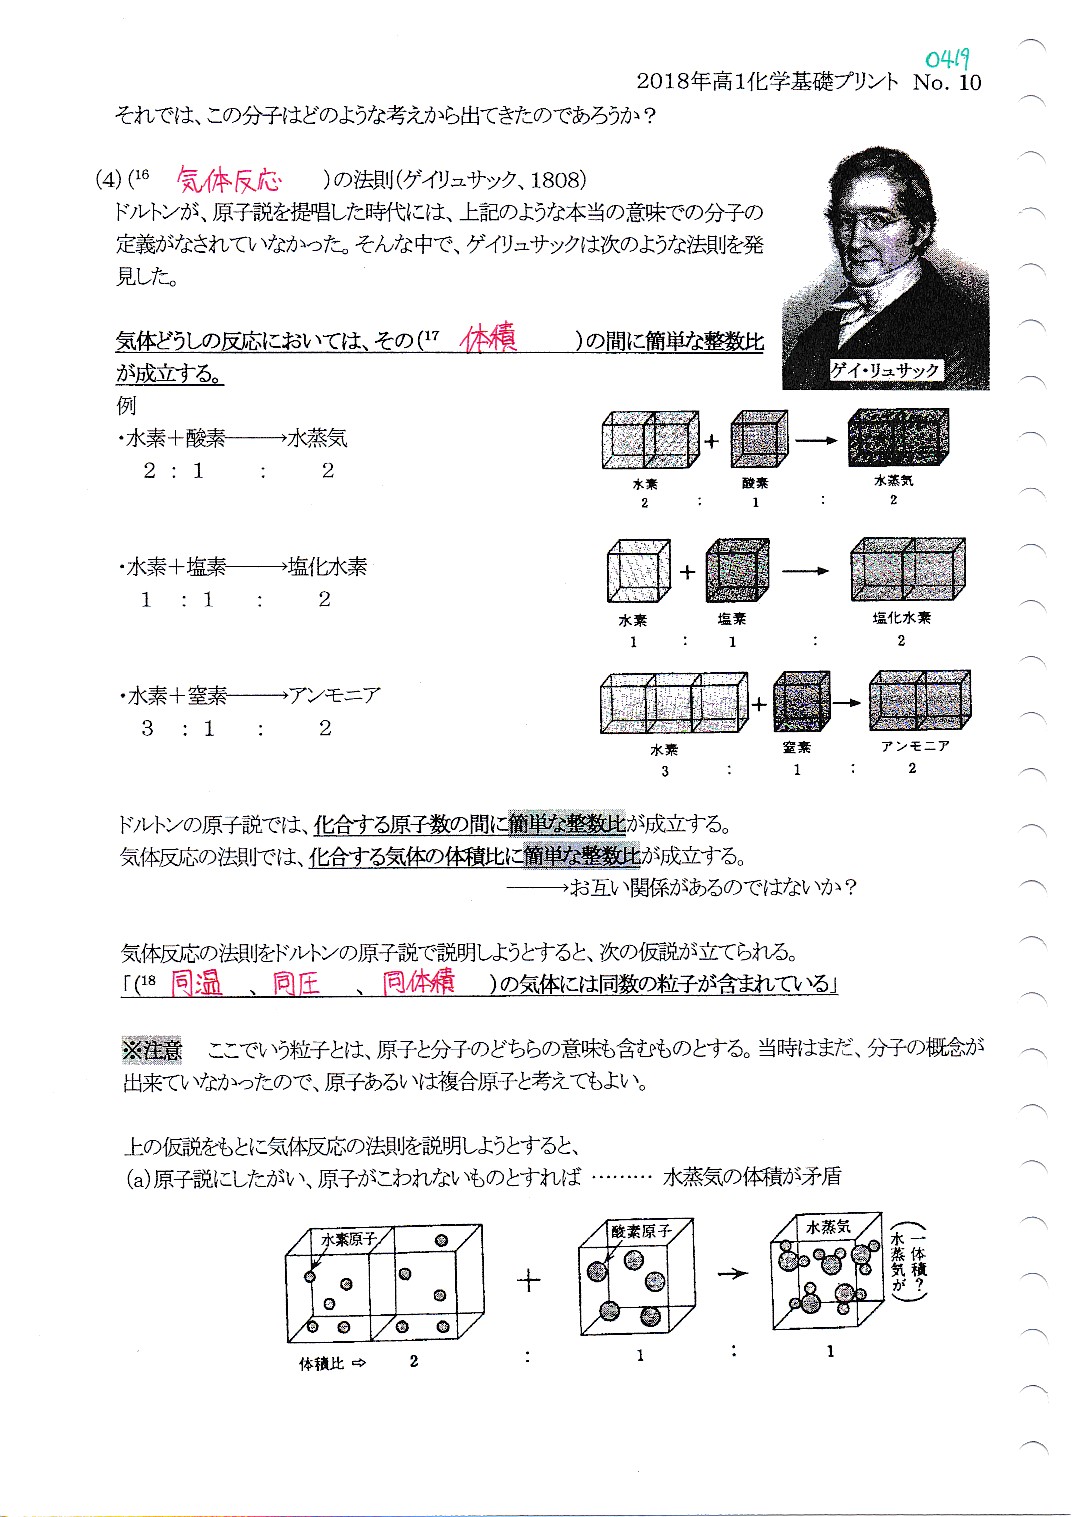 0419
2018年高1化学基礎プリント No. 10
それでは、この分子はどのような考えから出てきたのであろうか？
(4) (16 気体反応 )の法則(ゲイリュサック、1808)
ドルトンが、原子説を提唱した時代には、上記のような本当の意味での分子の
定義がなされていなかった。そんな中で、ゲイリュサックは次のような法則を発
見した。
気体どうしの反応においては、その(17 体積 )の間に簡単な整数比
が成立する。
ゲイ・リュサック
例
・水素＋酸素───→水蒸気
2 : 1 : 2
水素 酸素 水蒸気
2 : 1 : 2
・水素＋塩素───→塩化水素
1 : 1 : 2
水素 塩素 塩化水素
1 : 1 : 2
・水素＋窒素───→アンモニア
3 : 1 : 2
水素 窒素 アンモニア
3 : 1 : 2
ドルトンの原子説では、化合する原子数の間に簡単な整数比が成立する。
気体反応の法則では、化合する気体の体積比に簡単な整数比が成立する。
───→お互い関係があるのではないか？
気体反応の法則をドルトンの原子説で説明しようとすると、次の仮説が立てられる。
「(18 同温 、 同圧 、 同体積 )の気体には同数の粒子が含まれている」
※注意 ここでいう粒子とは、原子と分子のどちらの意味も含むものとする。当時はまだ、分子の概念が
出来ていなかったので、原子あるいは複合原子と考えてもよい。
上の仮説をもとに気体反応の法則を説明しようとすると、
(a)原子説にしたがい、原子がこわれないものとすれば ……… 水蒸気の体積が矛盾
水素原子 + 酸素原子 → 水蒸気
(水蒸気が
一体積？)
体積比 ⇨ 2 : 1 : 1